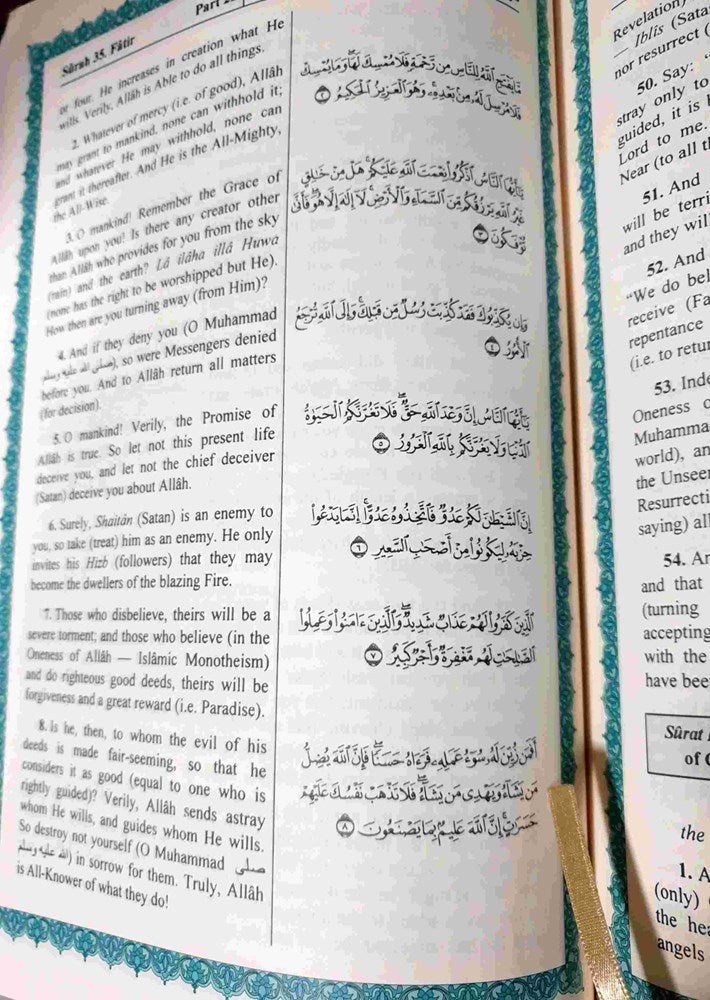 Sûrah 35. Fâtir
Part 2
or four. He increases in creation what He
wills. Verily, Allâh is Able to do all things.
2. Whatever of mercy (i.e. of good), Allâh
may grant to mankind, none can withhold it;
and whatever He may withhold, none can
grant it thereafter. And He is the All-Mighty,
the All-Wise.
3. O mankind! Remember the Grace of
Allâh upon you! Is there any creator other
than Allâh who provides for you from the sky
(rain) and the earth? Lâ ilâha illâ Huwa
(none has the right to be worshipped but He).
How then are you turning away (from Him)?
4. And if they deny you (O Muhammad
صلى الله عليه وسلم), so were Messengers denied
before you. And to Allâh return all matters
(for decision).
5. O mankind! Verily, the Promise of
Allâh is true. So let not this present life
deceive you, and let not the chief deceiver
(Satan) deceive you about Allâh.
6. Surely, Shaitân (Satan) is an enemy to
you, so take (treat) him as an enemy. He only
invites his Hizb (followers) that they may
become the dwellers of the blazing Fire.
7. Those who disbelieve, theirs will be a
severe torment; and those who believe (in the
Oneness of Allâh — Islâmic Monotheism)
and do righteous good deeds, theirs will be
forgiveness and a great reward (i.e. Paradise).
8. Is he, then, to whom the evil of his
deeds is made fair-seeming, so that he
considers it as good (equal to one who is
rightly guided)? Verily, Allâh sends astray
whom He wills, and guides whom He wills.
So destroy not yourself (O Muhammad صلى
الله عليه وسلم) in sorrow for them. Truly, Allâh
is All-Knower of what they do!
مَّا يَفْتَحِ ٱللَّهُ لِلنَّاسِ مِن رَّحْمَةٍ فَلَا مُمْسِكَ لَهَا وَمَا يُمْسِكْ
فَلَا مُرْسِلَ لَهُۥ مِنۢ بَعْدِهِۦ وَهُوَ ٱلْعَزِيزُ ٱلْحَكِيمُ ٢
يَـٰٓأَيُّهَا ٱلنَّاسُ ٱذْكُرُوا۟ نِعْمَتَ ٱللَّهِ عَلَيْكُمْ ۚ هَلْ مِنْ خَـٰلِقٍ
غَيْرُ ٱللَّهِ يَرْزُقُكُم مِّنَ ٱلسَّمَآءِ وَٱلْأَرْضِ ۚ لَآ إِلَـٰهَ إِلَّا هُوَ ۖ فَأَنَّىٰ
تُؤْفَكُونَ ٣
وَإِن يُكَذِّبُوكَ فَقَدْ كُذِّبَتْ رُسُلٌ مِّن قَبْلِكَ ۚ وَإِلَى ٱللَّهِ تُرْجَعُ
ٱلْأُمُورُ ٤
يَـٰٓأَيُّهَا ٱلنَّاسُ إِنَّ وَعْدَ ٱللَّهِ حَقٌّ ۖ فَلَا تَغُرَّنَّكُمُ ٱلْحَيَوٰةُ
ٱلدُّنْيَا ۖ وَلَا يَغُرَّنَّكُم بِٱللَّهِ ٱلْغَرُورُ ٥
إِنَّ ٱلشَّيْطَـٰنَ لَكُمْ عَدُوٌّ فَٱتَّخِذُوهُ عَدُوًّا ۚ إِنَّمَا يَدْعُوا۟
حِزْبَهُۥ لِيَكُونُوا۟ مِنْ أَصْحَـٰبِ ٱلسَّعِيرِ ٦
ٱلَّذِينَ كَفَرُوا۟ لَهُمْ عَذَابٌ شَدِيدٌ ۖ وَٱلَّذِينَ ءَامَنُوا۟ وَعَمِلُوا۟
ٱلصَّـٰلِحَـٰتِ لَهُم مَّغْفِرَةٌ وَأَجْرٌ كَبِيرٌ ٧
أَفَمَن زُيِّنَ لَهُۥ سُوٓءُ عَمَلِهِۦ فَرَءَاهُ حَسَنًا ۖ فَإِنَّ ٱللَّهَ يُضِلُّ
مَن يَشَآءُ وَيَهْدِى مَن يَشَآءُ ۖ فَلَا تَذْهَبْ نَفْسُكَ عَلَيْهِمْ
حَسَرَٰتٍ ۚ إِنَّ ٱللَّهَ عَلِيمٌۢ بِمَا يَصْنَعُونَ ٨
Revelation)
— Iblîs (Sata
nor resurrect (
50. Say: "
stray only to
guided, it is
Lord to me.
Near (to all t
51. And
will be terri
and they wil
52. And
"We do bel
receive (Fa
repentance
(i.e. to retur
53. Inde
Oneness o
Muhamma
world), an
the Unsee
Resurrecti
saying) al
54. An
and that
(turning
accepting
with the
have bee
Sûrat
of
the
1. A
(only)
the hea
angels